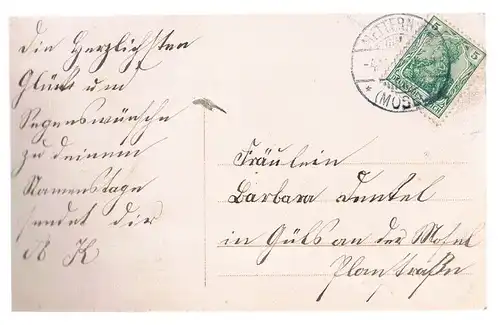 Die Herzlichsten
Glück und
Segenswünsche
zu deinem
Namenstage
sendet dir
A K
METTERN
(MOS
5 5
Fräulein
Barbara Dentel
in Güls an der Mosel
Planstraße